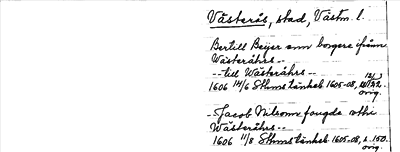 Västerås, stad, Västm. l.
Bertill Beijer som borgere ifrånn
Wästeråhrs--
--till Wästeråhrs--
1606 14/6 Sthms tänkeb. 1605-08,
orig.
-Jacob Nilsonn fougde
Wästeråhrs--
1606 11/8 Sthms tänkeb. 1605-08, s. 150.
orig.